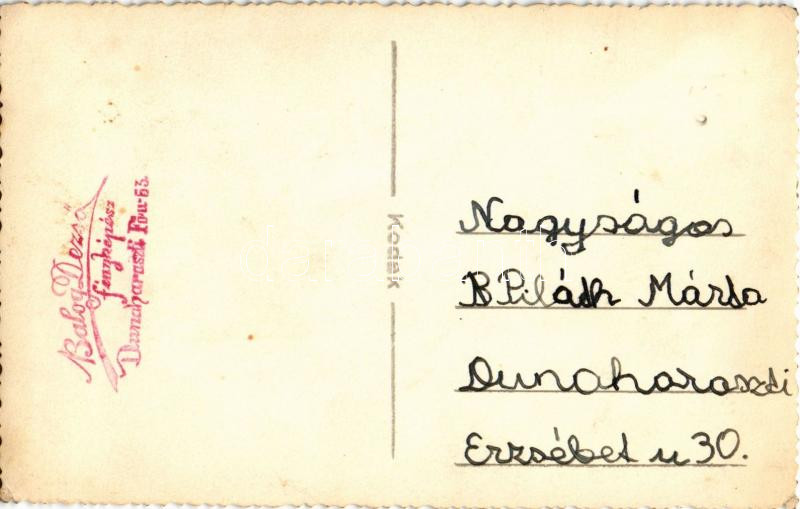 Balog Dezső
fényképész
Dunaharaszti Fő u 53.
Kodak
Nagyságos
B Piláth Márta
Dunaharaszti
Erzsébet u 30.